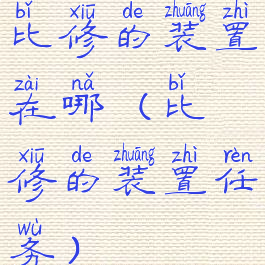 bǐ xiū de zhuāng zhì
比修的装置
zài nǎ bǐ
在哪（比
xiū de zhuāng zhì rèn
修的装置任
wù
务）